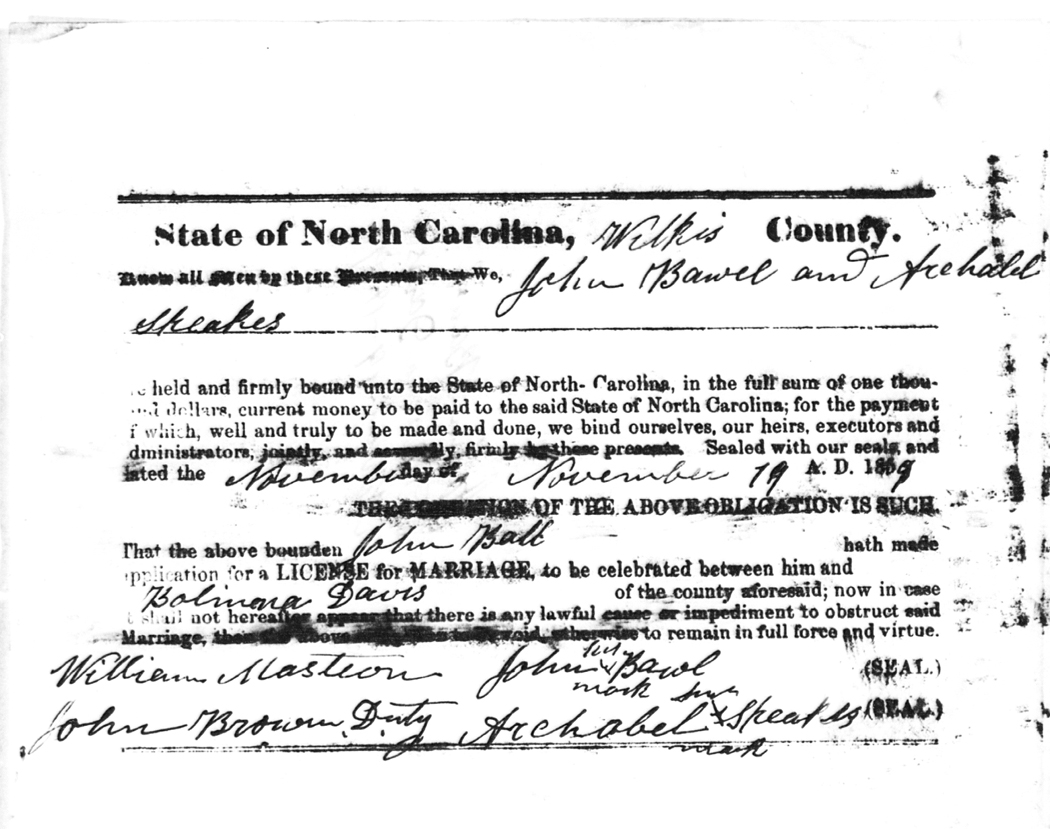 State of North Carolina, Wilkis County.
Know all Men by these Presents, That We, John Bawel and Archabel
Speakes
held and firmly bound unto the State of North-Carolina, in the full sum of one thou-
dollars, current money to be paid to the said State of North Carolina; for the payment
f which, well and truly to be made and done, we bind ourselves, our heirs, executors and
dministrators, jointly, and severally, firmly by these presents. Sealed with our seals, and
ated the November day of November 19 A. D. 18
THE CONDITION OF THE ABOVE OBLIGATION IS SUCH.
That the above bounden John Ball hath made
pplication for a LICENSE for MARRIAGE, to be celebrated between him and
Davis of the county aforesaid; now in case
t shall not hereafter appear that there is any lawful cause or impediment to obstruct said
Marriage, then the above obligation to be void, otherwise to remain in full force and virtue.
William Masteon John his x mark Bawl (SEAL.)
John Brown Archabel x mark Speakes (SEAL.)